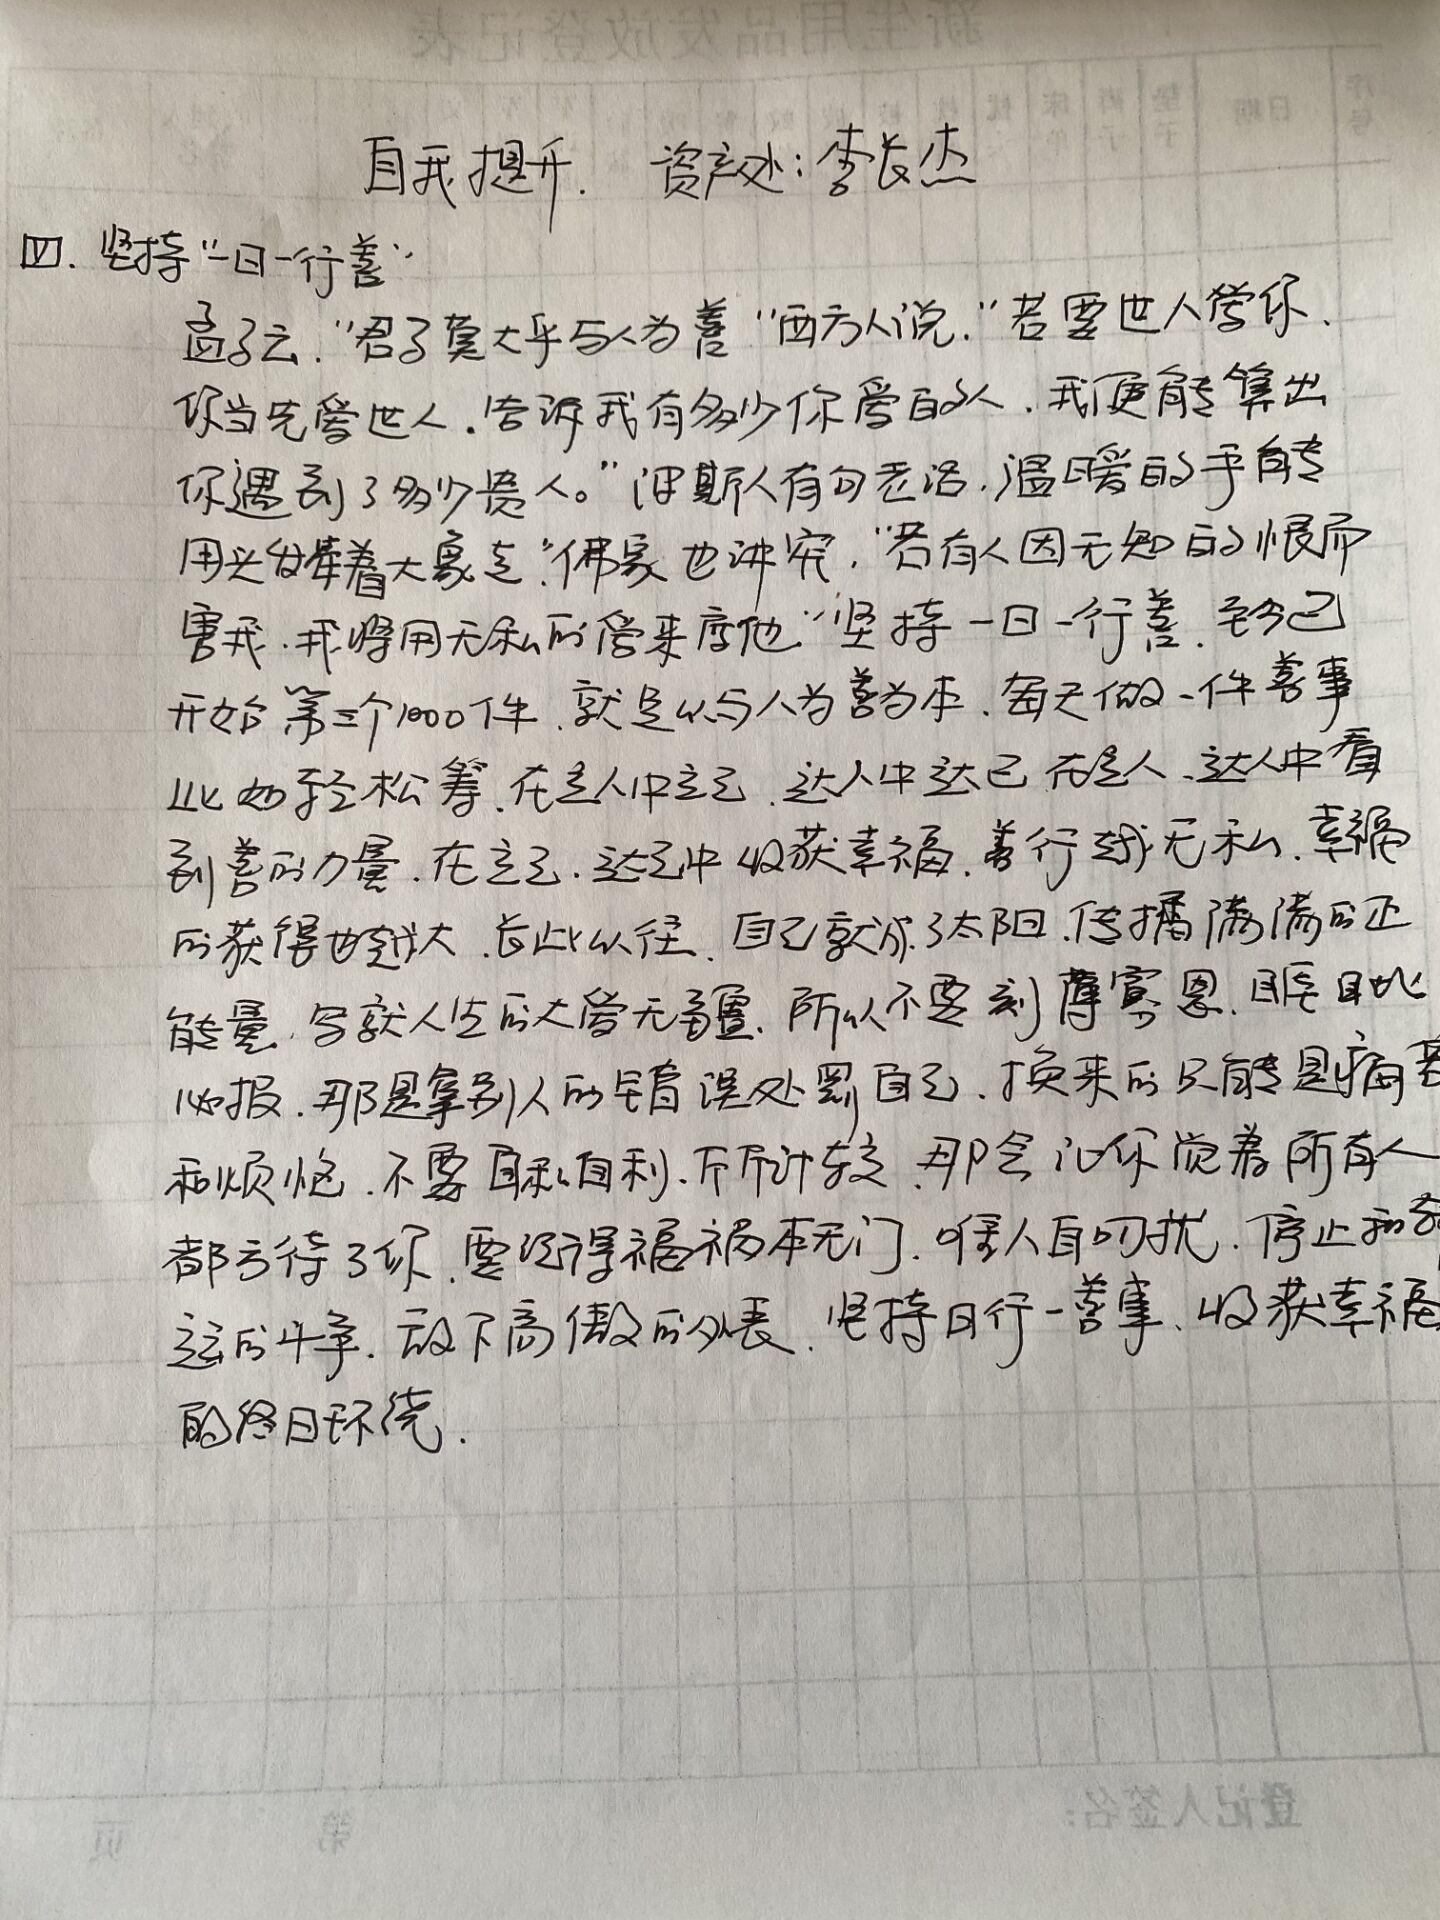 新生用品发放登记表
序号
日期
自我提升. 资产处:李长杰
四. 坚持“一日一行善”
孟子云,“君子莫大乎与人为善”西方人说,“若要世人爱你,
你当先爱世人,告诉我有多少你爱的人,我便能算出
你遇到了多少贵人。”波斯人有句老话,温暖的手能
用头发牵着大象走”佛家也讲究,“若有人因无知的恨而
害我,我将用无私的爱来度他”坚持一日一行善,至今已
开始第三个1000件,就是以与人为善为本,每天做一件善事
比如轻松筹,在立人中立己,达人中达己,在立人、达人中看
到善的力量,在立己、达己中收获幸福,善行越无私,幸福
的获得也越大,长此以往,自己就成了太阳,传播满满的正
能量,写就人生的大爱无疆,所以不要刻薄寡恩,睚眦
必报,那是拿别人的错误处罚自己,换来的只能是痛苦
和烦恼,不要自私自利,斤斤计较,那会让你觉着所有人
都亏待了你,要记得福祸本无门,唯人自叨扰,停止和命
运的斗争,放下高傲的外表,坚持日行一善事,收获幸福
的终日环绕.
登记人签名:
第 页